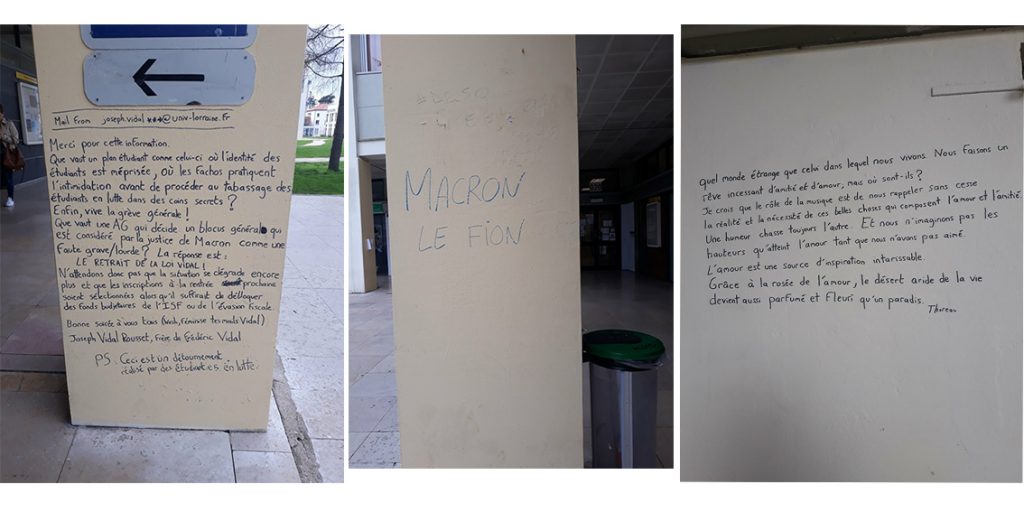 Mail from joseph.vidal ***@univ-lorraine.fr
Merci pour cette information.
Que vaut un plan étudiant comme celui-ci où l'identité des
étudiants est méprisée, où les fachos pratiquent
l'intimidation avant de procéder au tabassage des
étudiants en lutte dans des coins secrets ?
Enfin, vive la grève générale !
Que vaut une AG qui décide un blocus général qui
est considéré par la justice de Macron comme une
faute grave/lourde ? La réponse est :
LE RETRAIT DE LA LOI VIDAL !
N'attendons donc pas que la situation se dégrade encore
plus et que les inscriptions à la rentrée prochaine
soient sélectionnées alors qu'il suffirait de débloquer
des fonds budjétaires de l'ISF ou de l'évasion fiscale.
Bonne soirée à vous tous (Wesh, féminise tes mails Vidal!)
Joseph Vidal Rousset, frère de Frédéric Vidal
PS. Ceci est un détournement
réalisé par des étudiant.es en lutte.
MACRON
LE FION
quel monde étrange que celui dans lequel nous vivons. Nous faisons un
rêve incessant d'amitié et d'amour, mais où sont-ils ?
Je crois que le rôle de la musique est de nous rappeler sans cesse
la réalité et la nécessité de ces belles choses qui composent l'amour et l'amitié.
Une humeur chasse toujours l'autre. Et nous n'imaginons pas les
hauteurs qu'atteint l'amour tant que nous n'avons pas aimé.
L'amour est une source d'inspiration intarissable.
Grâce à la rosée de l'amour, le désert aride de la vie
devient aussi parfumé et fleuri qu'un paradis.
Thoreau